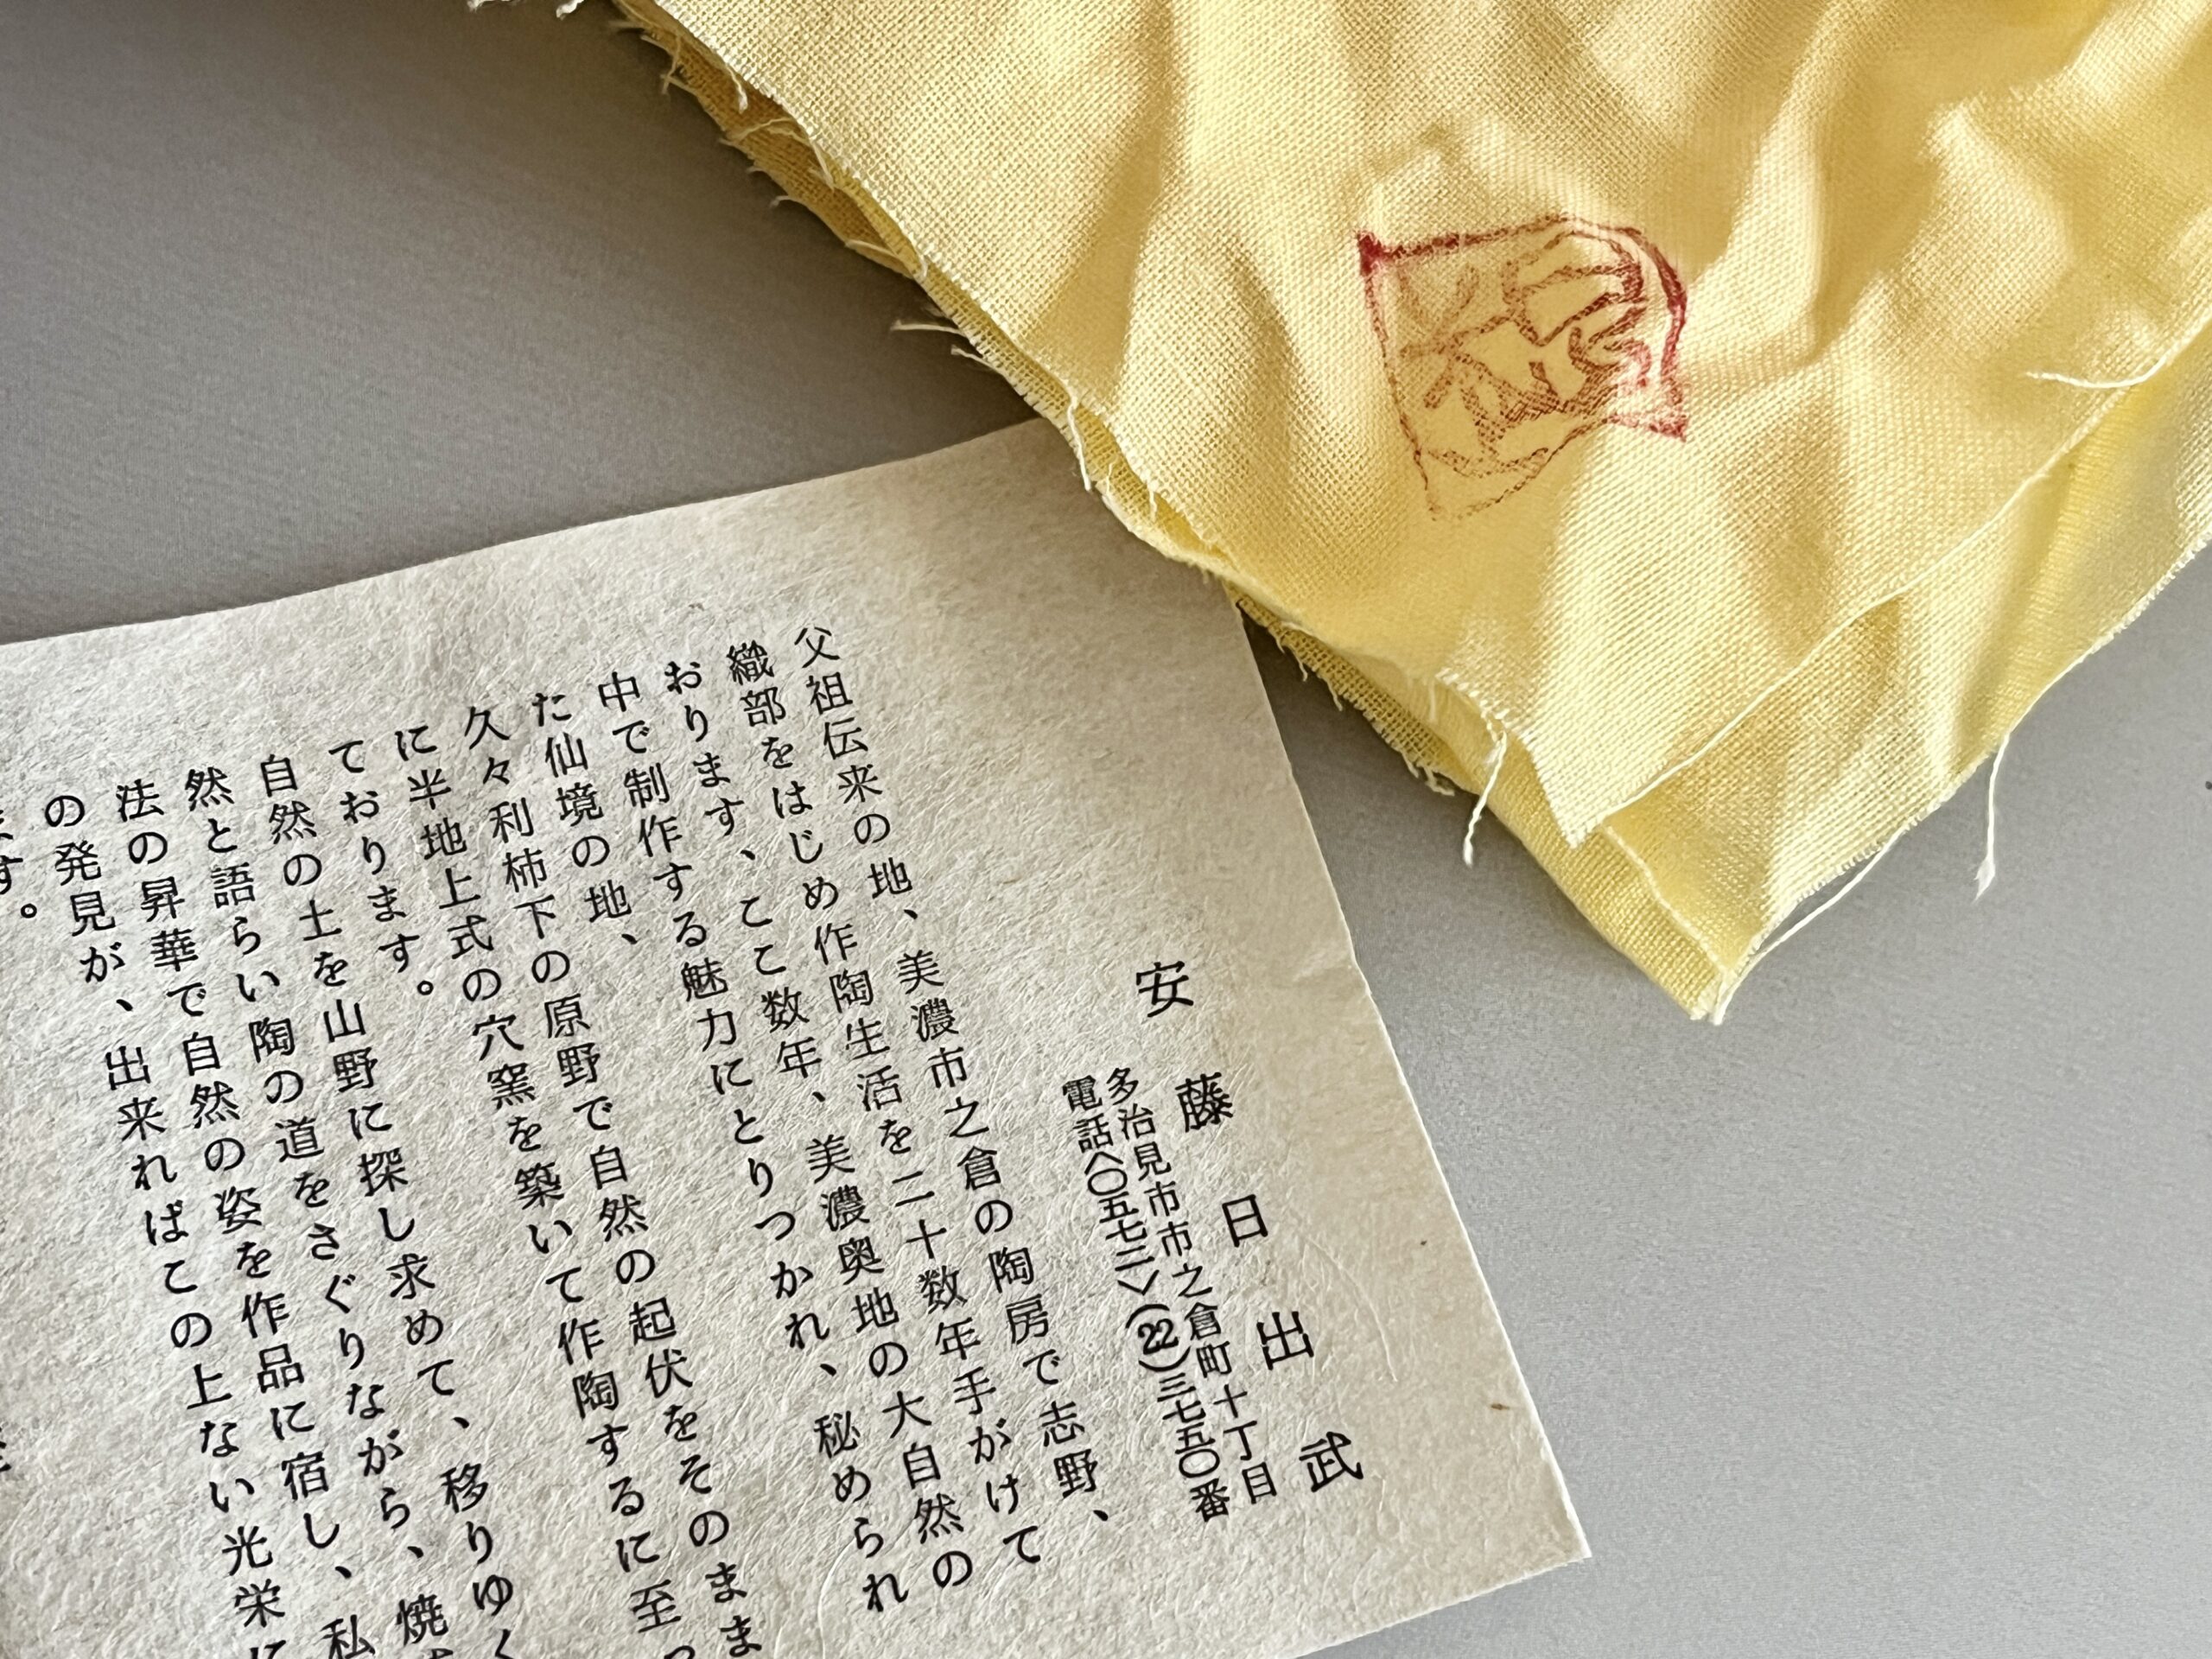 安藤日出武
多治見市市之倉町十丁目
電話〈〇五七二〉(22)三七五〇番
父祖伝来の地、美濃市之倉の陶房で志野、
織部をはじめ作陶生活を二十数年手がけて
おります、ここ数年、美濃奥地の大自然の
中で制作する魅力にとりつかれ、秘められ
た仙境の地、
久々利柿下の原野で自然の起伏をそのまま
に半地上式の穴窯を築いて作陶するに至っ
ております。
自然の土を山野に探し求めて、移りゆく
然と語らい陶の道をさぐりながら、焼
法の昇華で自然の姿を作品に宿し、私
の発見が、出来ればこの上ない光栄に
ます。